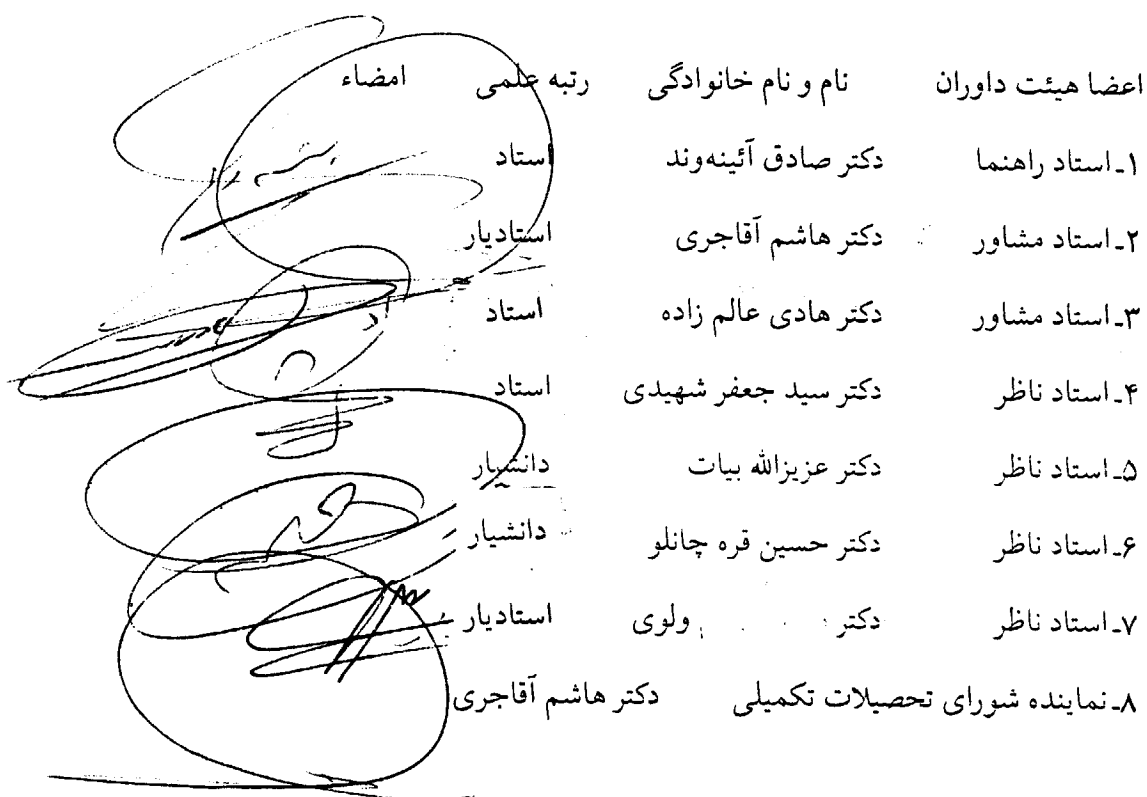 اعضا هیئت داوران نام و نام خانوادگی رتبه علمی امضاء
۱ـ استاد راهنما دکتر صادق آئینه‌وند استاد
۲ـ استاد مشاور دکتر هاشم آقاجری استادیار
۳ـ استاد مشاور دکتر هادی عالم زاده استاد
۴ـ استاد ناظر دکتر سید جعفر شهیدی استاد
۵ـ استاد ناظر دکتر عزیزالله بیات دانشیار
۶ـ استاد ناظر دکتر حسین قره چانلو دانشیار
۷ـ استاد ناظر دکتر ولوی استادیار
۸ـ نماینده شورای تحصیلات تکمیلی دکتر هاشم آقاجری